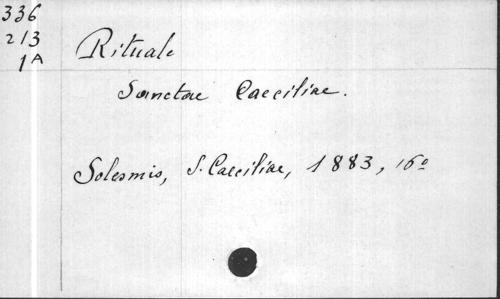 336
213
1A
Rituale
Sanctae Caeciliae.
Solesmis, S. Caeciliae, 1883, 16º